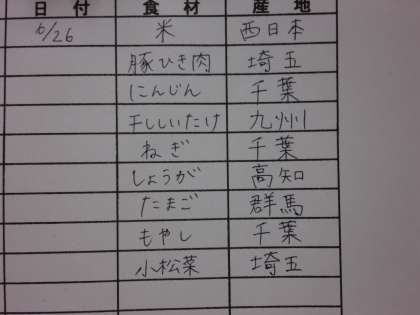 日付 食材 産地
6/26 米 西日本
豚ひき肉 埼玉
にんじん 千葉
干ししいたけ 九州
ねぎ 千葉
しょうが 高知
たまご 群馬
もやし 千葉
小松菜 埼玉